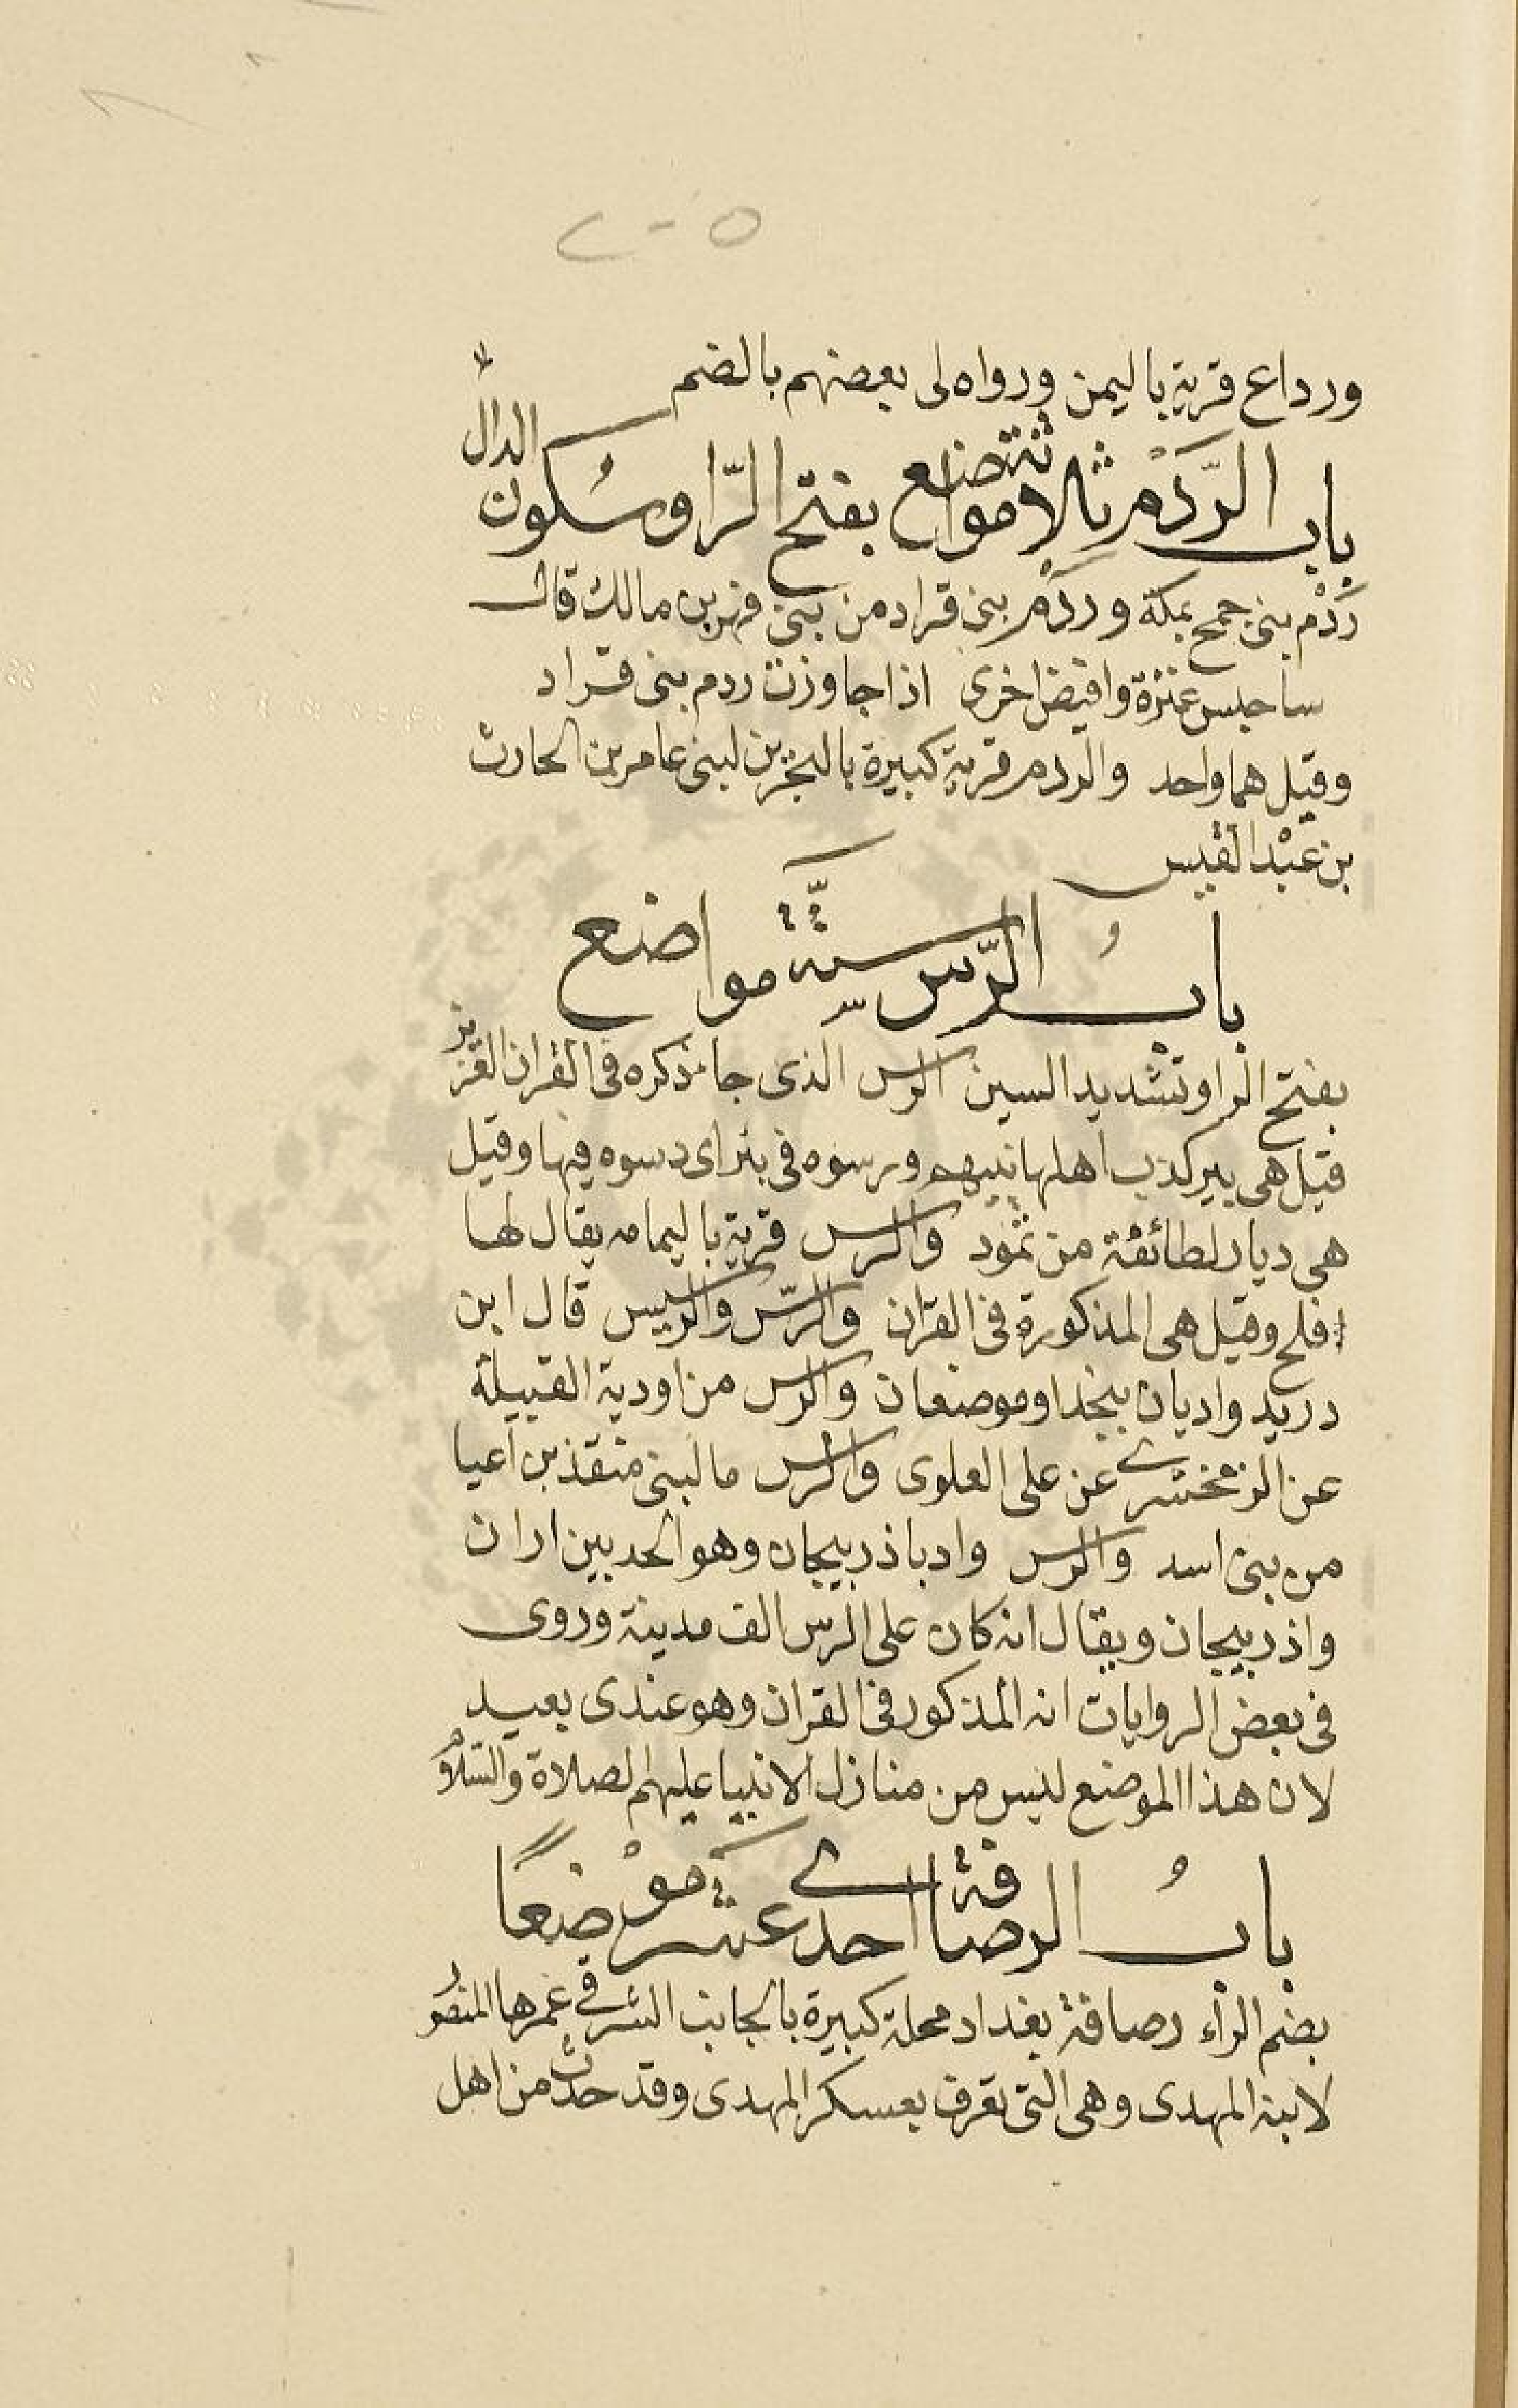 ٢٠٥
ورداع قرية باليمن ورواه لى بعضهم بالضم
باب الرَّدْم ثلاثة مواضع بفتح الرّا وسُكون الدال
رَدْم بنى جمح بمكة ورَدْم بنى قراد من بنى فهر بن مالك قال
ساحبس عنزة وافيض اخرى اذا جاوزت ردم بنى قراد
وقيل هما واحد والردم قرية كبيرة بالبحرين لبنى عامر بن الحارث
بن عبْد القيس
بابُ الرّس ستّة مواضع
بفتح الرا وتشديد السين الرس الذى جا ذكره فى القران العزيز
قيل هى بير كذب اهلها نبيهم ورسوه فى بئر اى دسوه فيها وقيل
هى ديار لطائفة من ثمود والرس قرية باليمامه يقال لها
فلح وقيل هى المذكورة فى القران والرّس والرسيس قال ابن
دريد واديان بنجد او موضعان والرس من اودية القبيلة
عن الزمخشرى عن على العلوى والرس ما لبنى منقذ بن اعيا
من بنى اسد والرس واد باذربيجان وهو الحد بين اران
واذربيجان ويقال انه كان على الرس الف مدينة وروى
فى بعض الروايات انه المذكور فى القران وهو عندى بعيد
لان هذا الموضع ليس من منازل الانبيا عليهم الصلاة والسّلام
بابُ الرصافة احدى عشر موْضعًا
بضم الراء رصافة بغداد محلة كبيرة بالجانب الشرقى عمرها المنصور
لابنه المهدى وهى التى تعرف بعسكر المهدى وقد حدث من اهل